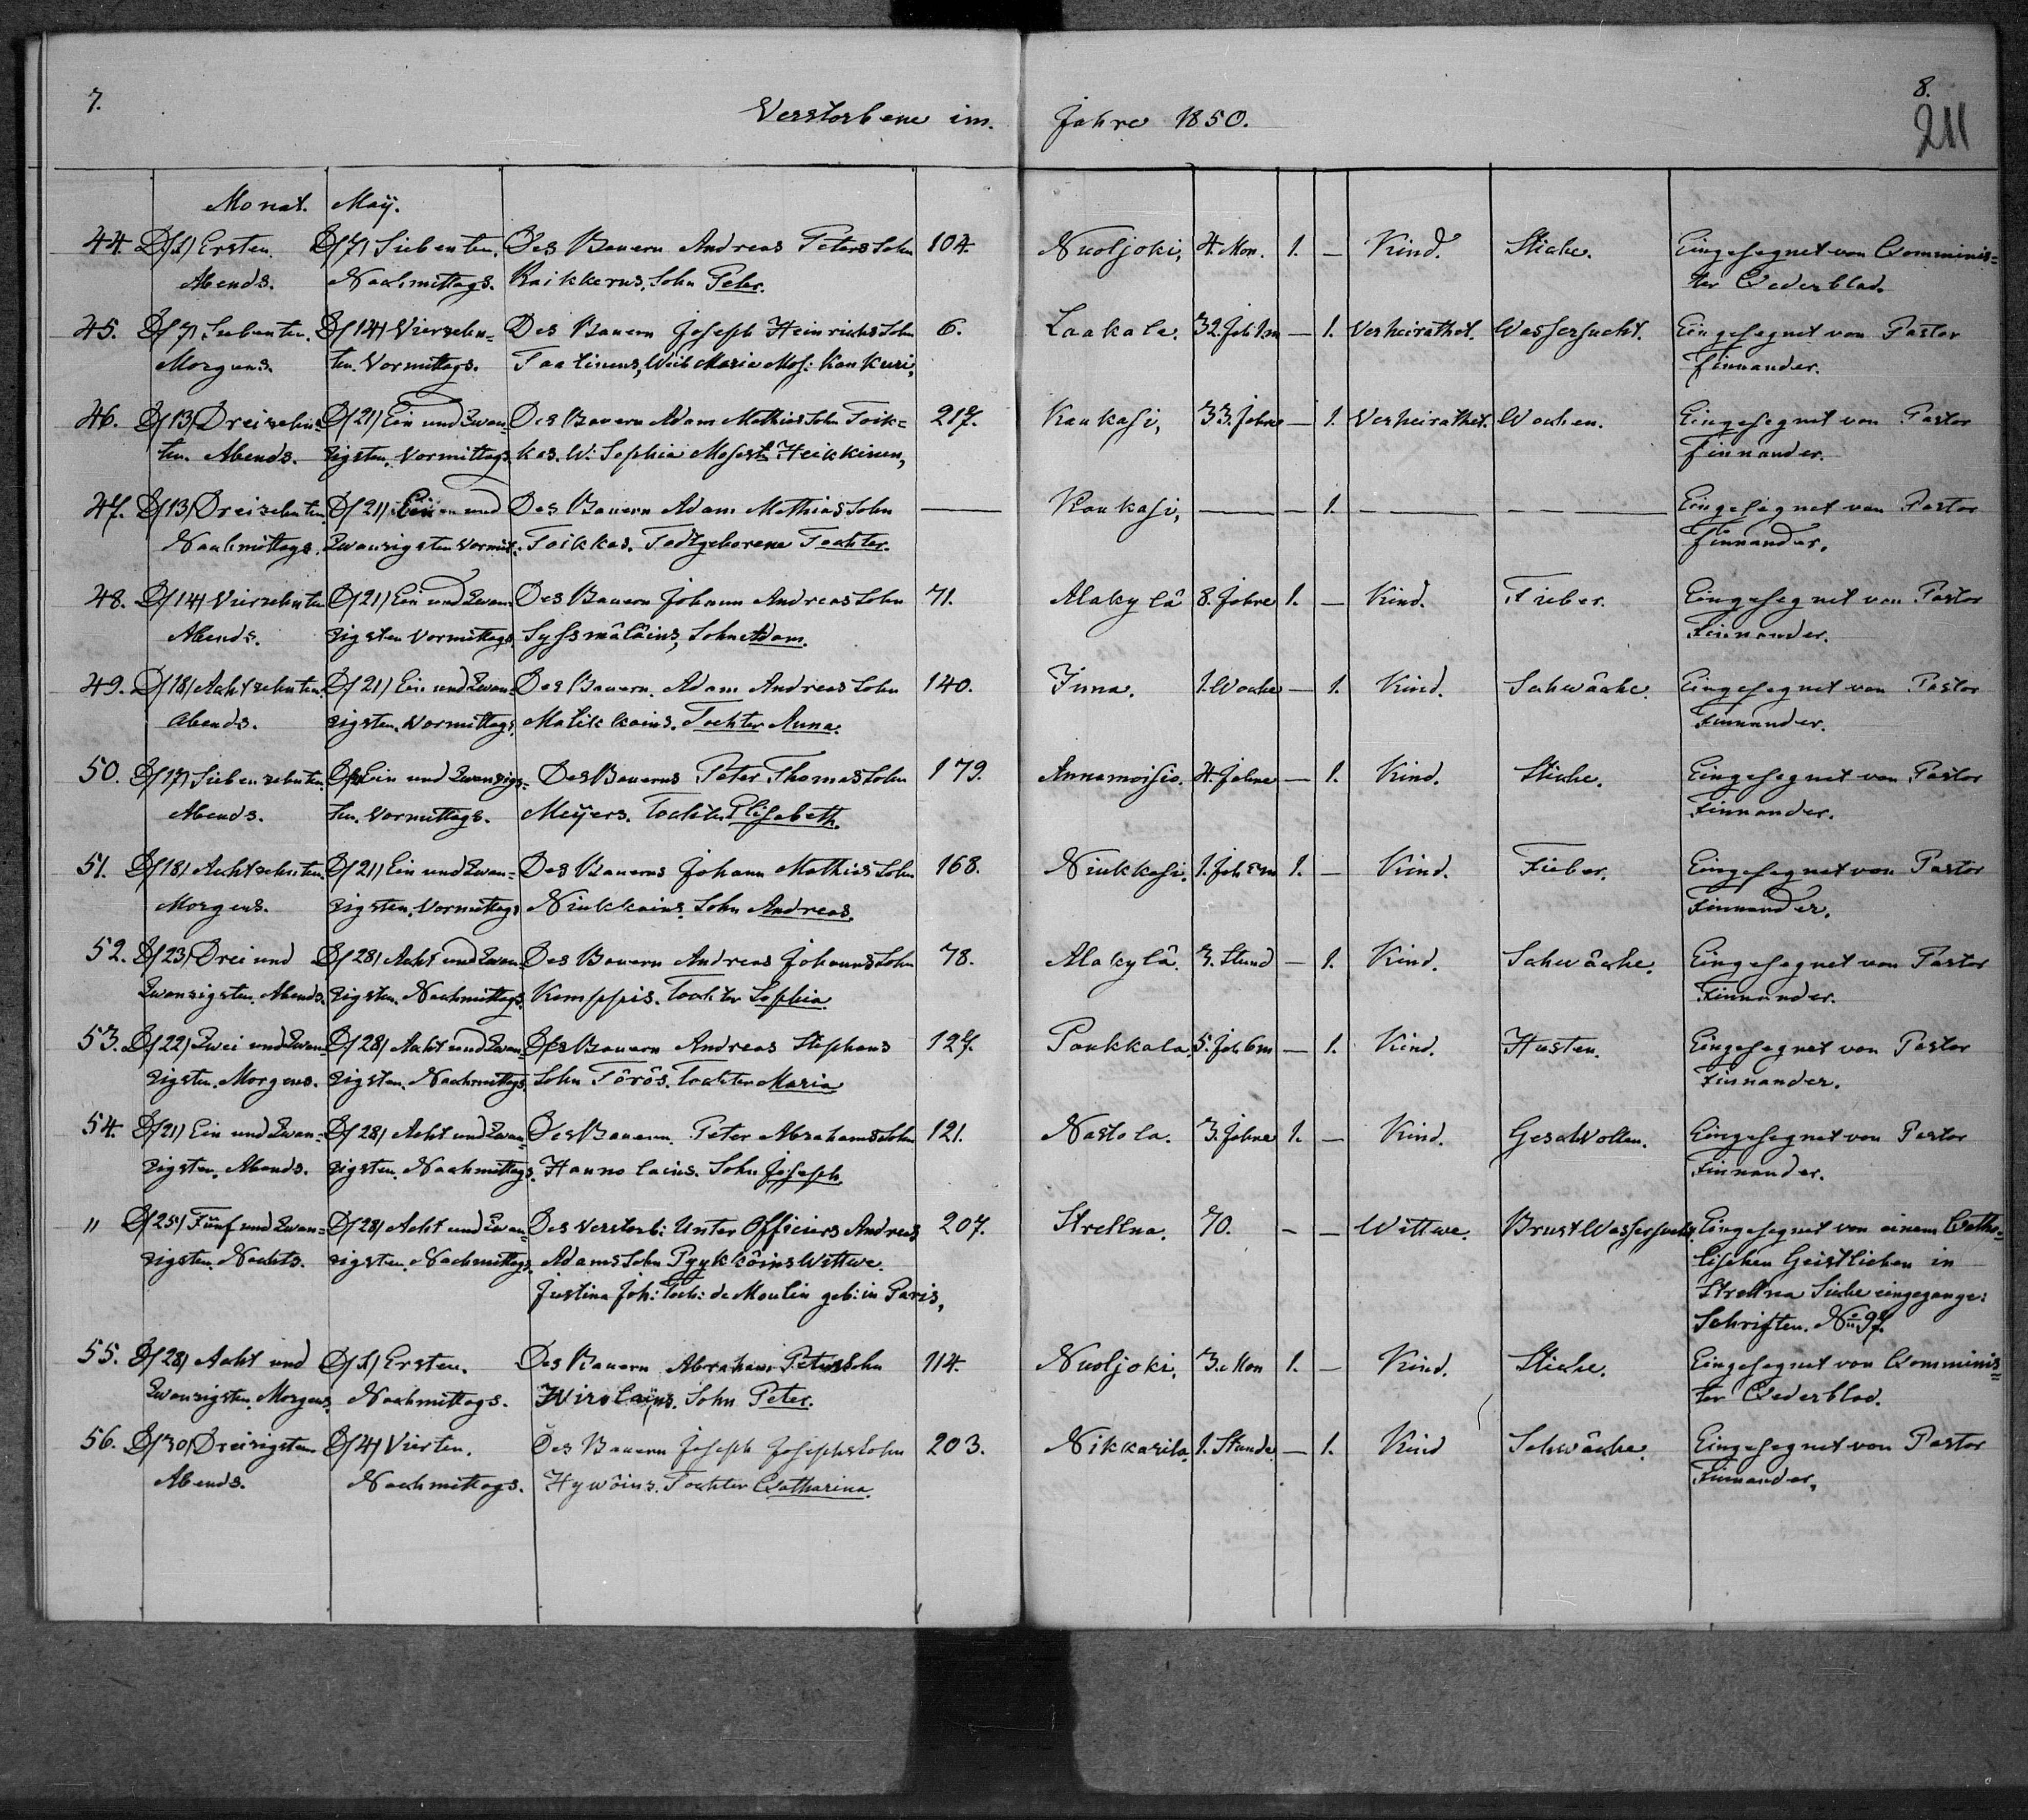 7.
8.
211
Verstorbene im. Jahre 1850.
Monat. May.
44. D/1/ Ersten. D/7/ Siebenten. Des Bauern Andreas Peters Sohn 104. Nuoljoki, 4. Mon. 1. — Kind. Stiche. Eingesegnet von Comminis=
Abends. Nachmittags. Raikkerus, Sohn Peter. ter Cederblad.
45. D/7/ Siebenten. D/14/ Vierzehn= Des Bauern Joseph Heinrichs Sohn 6. Laakala. 32. Jah 1.m — 1. Verheirathet. Wassersucht. Eingesegnet von Pastor
Morgens. ten. Vormittags. Taatinens, Weib Maria Mos: Kankuri, Finnander.
46. D/13/ Dreizehn= D/21/ Ein und Zwan= Des Bauern Adam Mathias Sohn Toik= 217. Kaukasi, 33. Jahre — 1. Verheirathet. Wochen. Eingesegnet von Pastor
ten. Abends. zigsten. Vormittags. kas. W. Sophia Moses t. Heikkinen, Finnander.
47. D/13/ Dreizehnten D/21/ Ein und Des Bauern Adam Mathias Sohn — Kaukasi, — — 1. — — Eingesegnet von Pastor
Nachmittags. Zwanzigsten Vormit: Toikkas. Todtgeborene Tochter. Finnander.
48. D/14/ Vierzehnten D/21/ Ein und Zwan= Des Bauern Johann Andreas Sohn 71. Alakylä 8. Jahre 1. — Kind. Fieber. Eingesegnet von Pastor
Abends. zigsten Vormittags. Syssmäläins, Sohn Adam. Finnander.
49. D/18/ Achtzehnten. D/21/ Ein und Zwan= Des Bauern. Adam Andreas Sohn 140. Inna. 1. Woche — 1. Kind. Schwäche. Eingesegnet von Pastor
Abends. zigsten. Vormittags. Matikkains. Tochter Anna. Finnander.
50. D/17/ Siebenzehnten. D/ Ein und Zwanzigs= Des Bauerns Peter Thomas Sohn 179. Annamoisio. 4. Jahre — 1. Kind. Stiche. Eingesegnet von Pastor
Abends. ten. Vormittags. Meÿers. Tochter Elisabeth. Finnander.
51. D/18/ Achtzehnten. D/21/ Ein und Zwan= Des Bauerns Johann Mathias Sohn 168. Niukkasi. 1. Jah 5m 1. — Kind. Fieber. Eingesegnet von Pastor
Morgens. zigsten. Vormittags Niukkains. Sohn Andreas. Finnander.
52. D/23/ Drei und D/28/ Acht und Zwan= Des Bauern Andreas Johanns Sohn 78. Alakylä. 3. Stund — 1. Kind. Schwäche. Eingesegnet von Pastor
Zwanzigsten. Abends. zigsten. Nachmittags. Kemppis. Tochter Sophia Finnander.
53. D/22/ Zwei und Zwan= D/28/ Acht und Zwan= Des Bauern Andreas Stephans 127. Paukkala. 5. Jah. 6m — 1. Kind. Husten. Eingesegnet von Pastor
zigsten. Morgens. zigsten. Nachmittags. Sohn Törös. Tochter Maria Finnander.
54. D/21/ Ein und Zwan= D/28/ Acht und Zwan= Des Bauern. Peter Abrahams Sohn 121. Nastola. 3. Jahre 1. — Kind. Geschwollen. Eingesegnet von Pastor
zigsten. Abends. zigsten. Nachmittags. Hannolains. Sohn Joseph. Finnander.
" D/25/ Fünf und Zwan= D/28/ Acht und Zwan= Des verstorb: Unter Officiers Andreas 207. Strellna. 70. — — Wittwe. Brust Wassersucht. Eingesegnet von einem Catho=
zigsten. Nachts. zigsten. Nachmittags. Adams Sohn Pyykköins Wittwe. lischen Geistlichen in
Justina Joh: Toch: de Moulin geb: in Paris, Strellna Siehe eingegange:
Schriften. No 97.
55. D/28/ Acht und D/1/ Ersten. Des Bauern Abraham Peters Sohn 114. Nuoljoki, 3. Mon 1. — Kind. Stiche. Eingesegnet von Comminis=
Zwanzigsten. Morgens. Nachmittags. Wirolains. Sohn Peter. ter Cederblad.
56. D/30/ Dreizigsten D/4/ Vierten. Des Bauern Joseph Josephs Sohn 203. Nikkarila. 1. Stunde. — 1. Kind Schwäche. Eingesegnet von Pastor
Abends. Nachmittags. Hywöins. Tochter Catharina. Finnander,